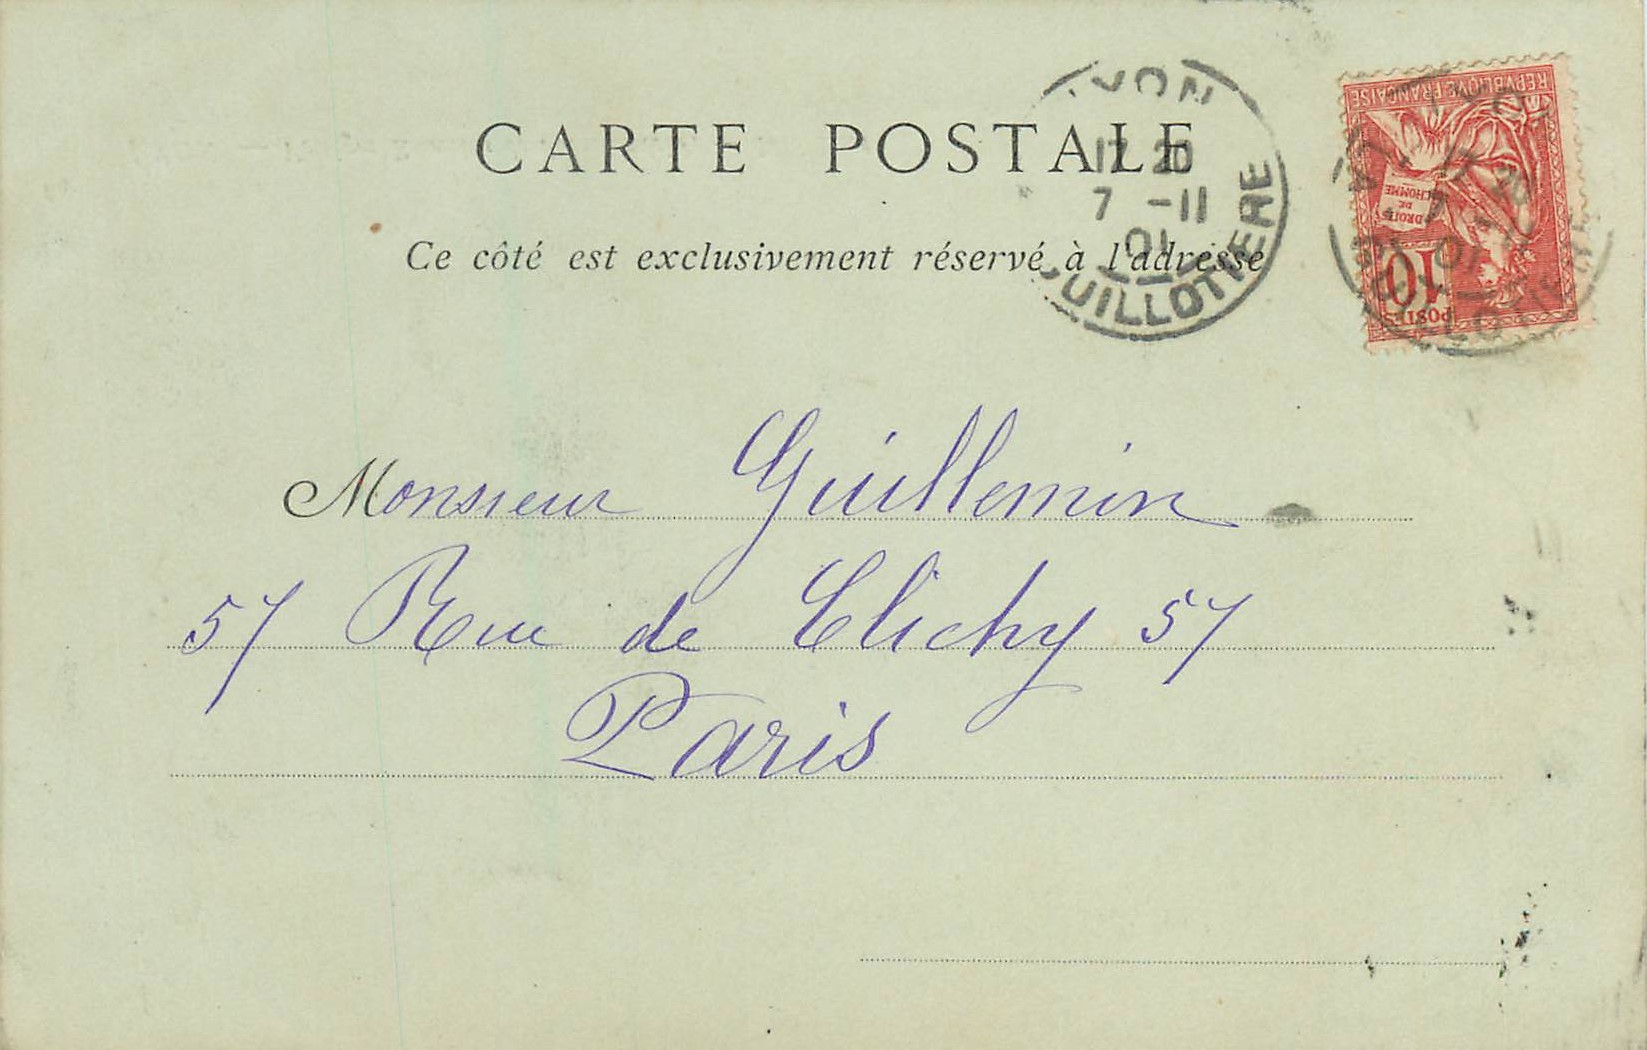 CARTE POSTALE
Ce côté est exclusivement réservé à l'adresse
LYON
17 20
7 -11
01
GUILLOTIERE
REPVBLIQVE FRANÇAISE
DROITS
DE
L'HOMME
10
POSTES
Monsieur Guillemin
57 Rue de Clichy 57
Paris